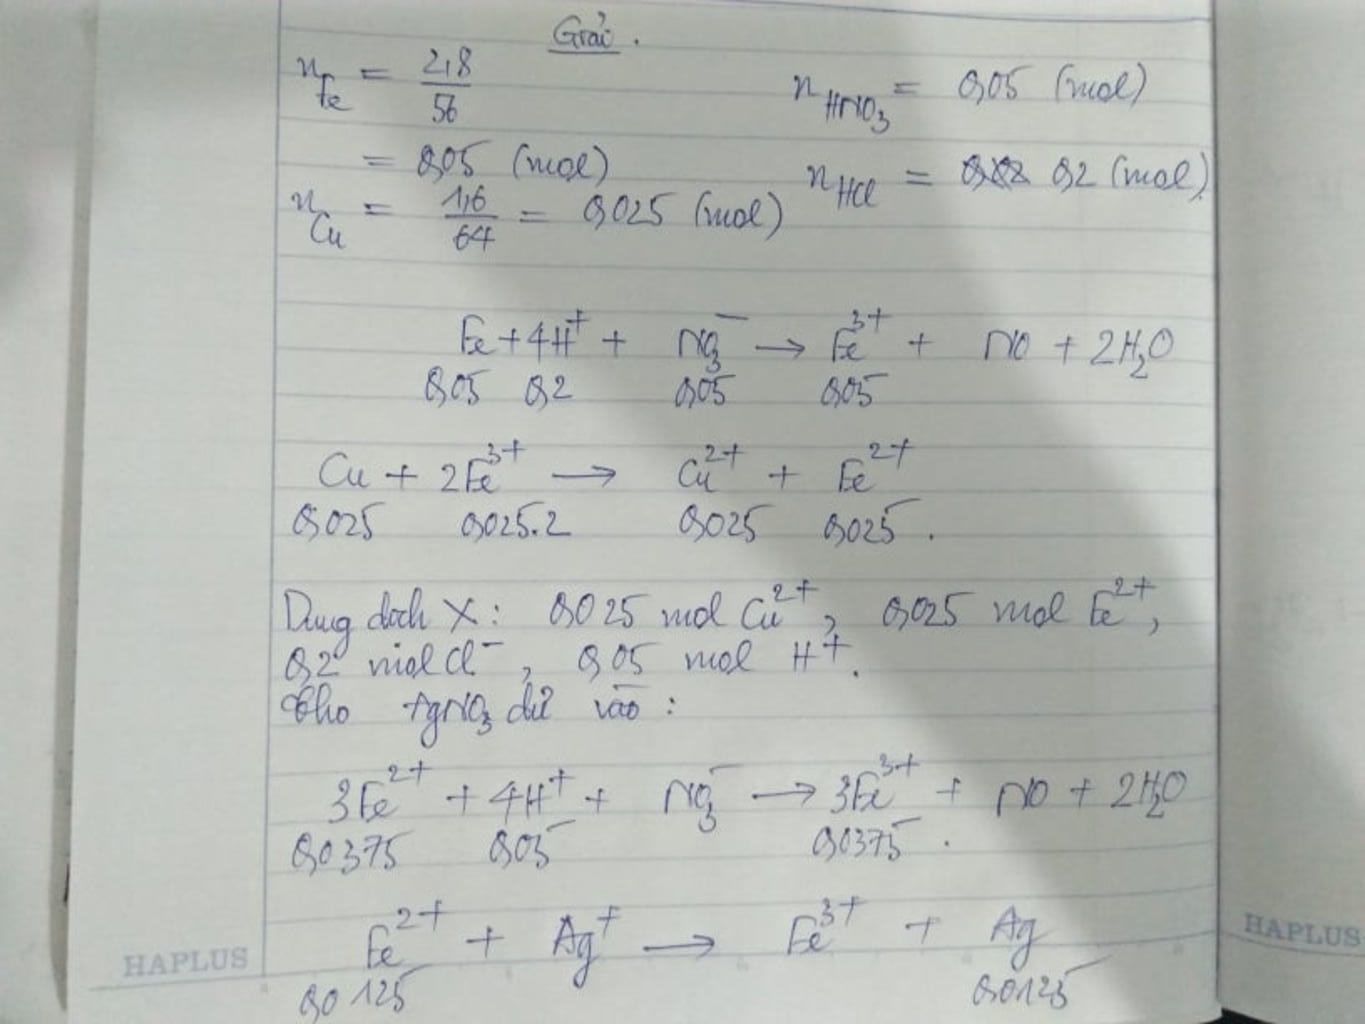 Giải.
n_Fe = 2,8/56    n_HNO3 = 0,05 (mol)
= 0,05 (mol)    n_HCl = 0,2 (mol)
n_Cu = 1,6/64 = 0,025 (mol)
Fe + 4H⁺ + NO₃⁻ → Fe³⁺ + NO + 2H₂O
0,05 0,2 0,05 0,05
Cu + 2Fe³⁺ → Cu²⁺ + Fe²⁺
0,025 0,025.2 0,025 0,025.
Dung dịch X: 0,025 mol Cu²⁺, 0,025 mol Fe²⁺,
0,2 mol Cl⁻, 0,05 mol H⁺.
Cho AgNO₃ dư vào:
3Fe²⁺ + 4H⁺ + NO₃⁻ → 3Fe³⁺ + NO + 2H₂O
0,0375 0,05 0,0375.
Fe²⁺ + Ag⁺ → Fe³⁺ + Ag
0,0125 0,0125
HAPLUS
HAPLUS